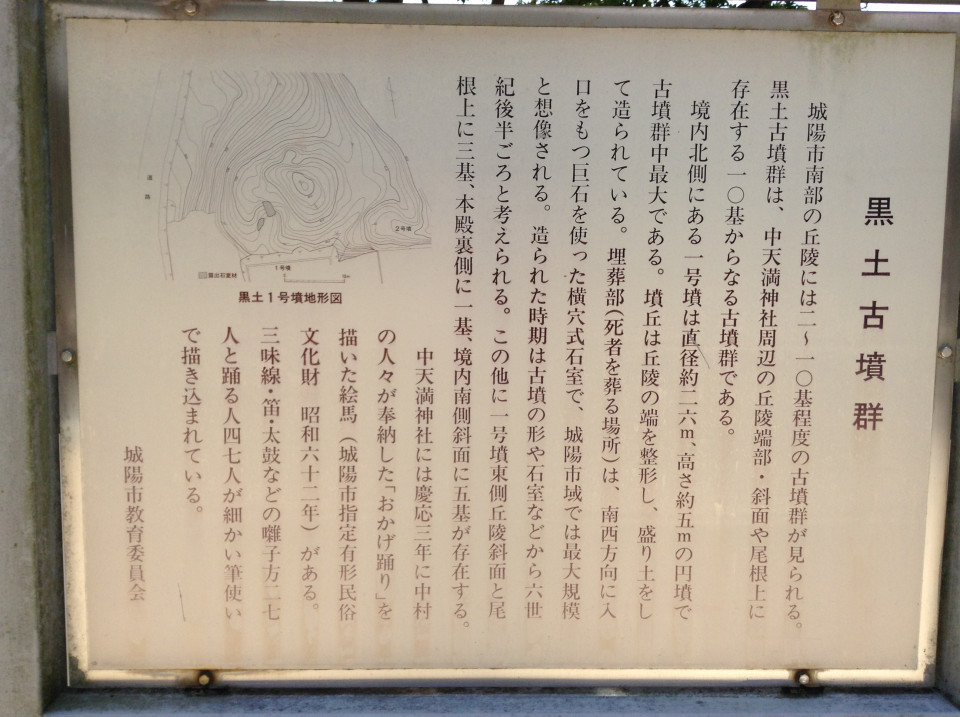 黒土古墳群
城陽市南部の丘陵には二～一〇基程度の古墳群が見られる。
黒土古墳群は、中天満神社周辺の丘陵端部・斜面や尾根上に
存在する一〇基からなる古墳群である。
境内北側にある一号墳は直径約二六m、高さ約五mの円墳で
古墳群中最大である。墳丘は丘陵の端を整形し、盛り土をし
て造られている。埋葬部(死者を葬る場所)は、南西方向に入
口をもつ巨石を使った横穴式石室で、城陽市域では最大規模
と想像される。造られた時期は古墳の形や石室などから六世
紀後半ごろと考えられる。この他に一号墳東側丘陵斜面と尾
根上に三基、本殿裏側に一基、境内南側斜面に五基が存在する。
中天満神社には慶応三年に中村
の人々が奉納した「おかげ踊り」を
描いた絵馬(城陽市指定有形民俗
文化財　昭和六十二年)がある。
三味線・笛・太鼓などの囃子方二七
人と踊る人四七人が細かい筆使い
で描き込まれている。
城陽市教育委員会
道路
2号墳
1号墳
露出石室材
黒土1号墳地形図